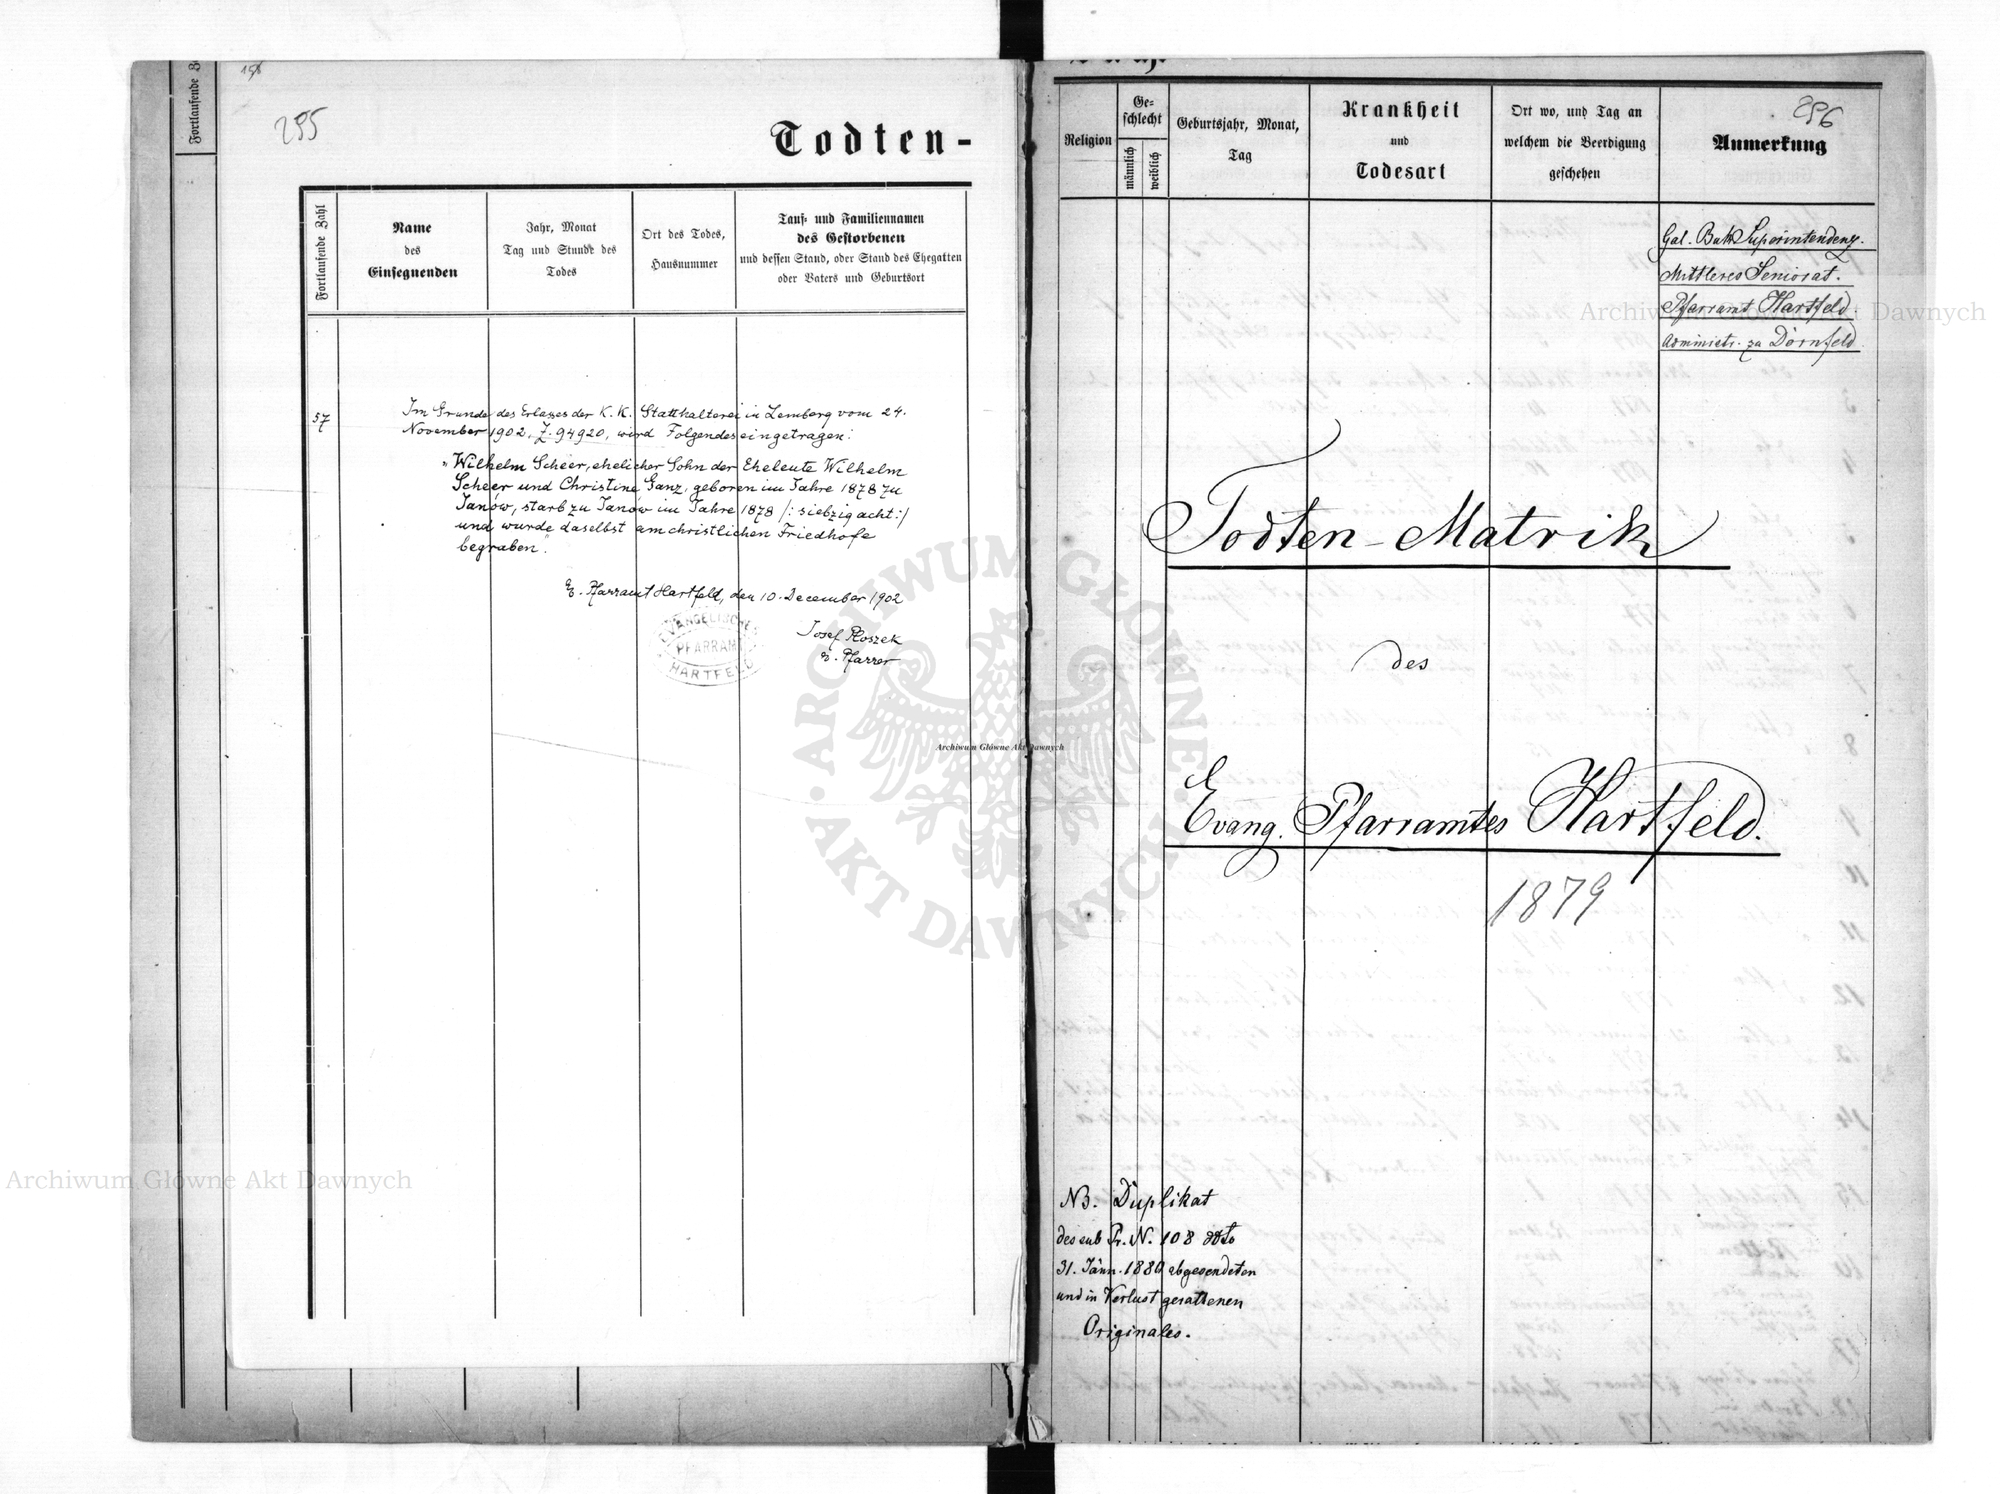 Fortlaufende Z
255
Todten-
Fortlaufende Zahl
Name
des
Einsegnenden
Jahr, Monat
Tag und Stunde des
Todes
Ort des Todes,
Hausnummer
Tauf- und Familiennamen
des Gestorbenen
und dessen Stand, oder Stand des Ehegatten
oder Vaters und Geburtsort
57
Im Grunde des Erlasses der K. K. Statthalterei in Lemberg vom 24.
November 1902, Z. 94920, wird Folgendes eingetragen:
„Wilhelm Scheer, ehelicher Sohn der Eheleute Wilhelm
Scheer und Christine Ganz, geboren im Jahre 1878 zu
Janów, starb zu Janów im Jahre 1878 /: siebzig acht :/
und wurde daselbst am christlichen Friedhofe
begraben".
E. Pfarramt Hartfeld, den 10. December 1902
Josef Ploszek
e. Pfarrer
EVANGELISCHES
PFARRAMT
HARTFELD
256
Religion
Ge-
schlecht
männlich
weiblich
Geburtsjahr, Monat,
Tag
Krankheit
und
Todesart
Ort wo, und Tag an
welchem die Beerdigung
geschehen
Anmerkung
Gal. Buk. Superintendenz.
Mittleres Seniorat.
Pfarramt Hartfeld
Administr. zu Dornfeld.
Todten-Matrik
des
Evang. Pfarramtes Hartfeld.
1879
NB. Duplikat
des sub Pr. N. 108 ddto
31. Jänn. 1880 abgesendeten
und in Verlust gerattenen
Originales.
Archiwum Główne Akt Dawnych
Archiwum Główne Akt Dawnych
Archiwum Główne Akt Dawnych
ARCHIWUM GŁÓWNE AKT DAWNYCH